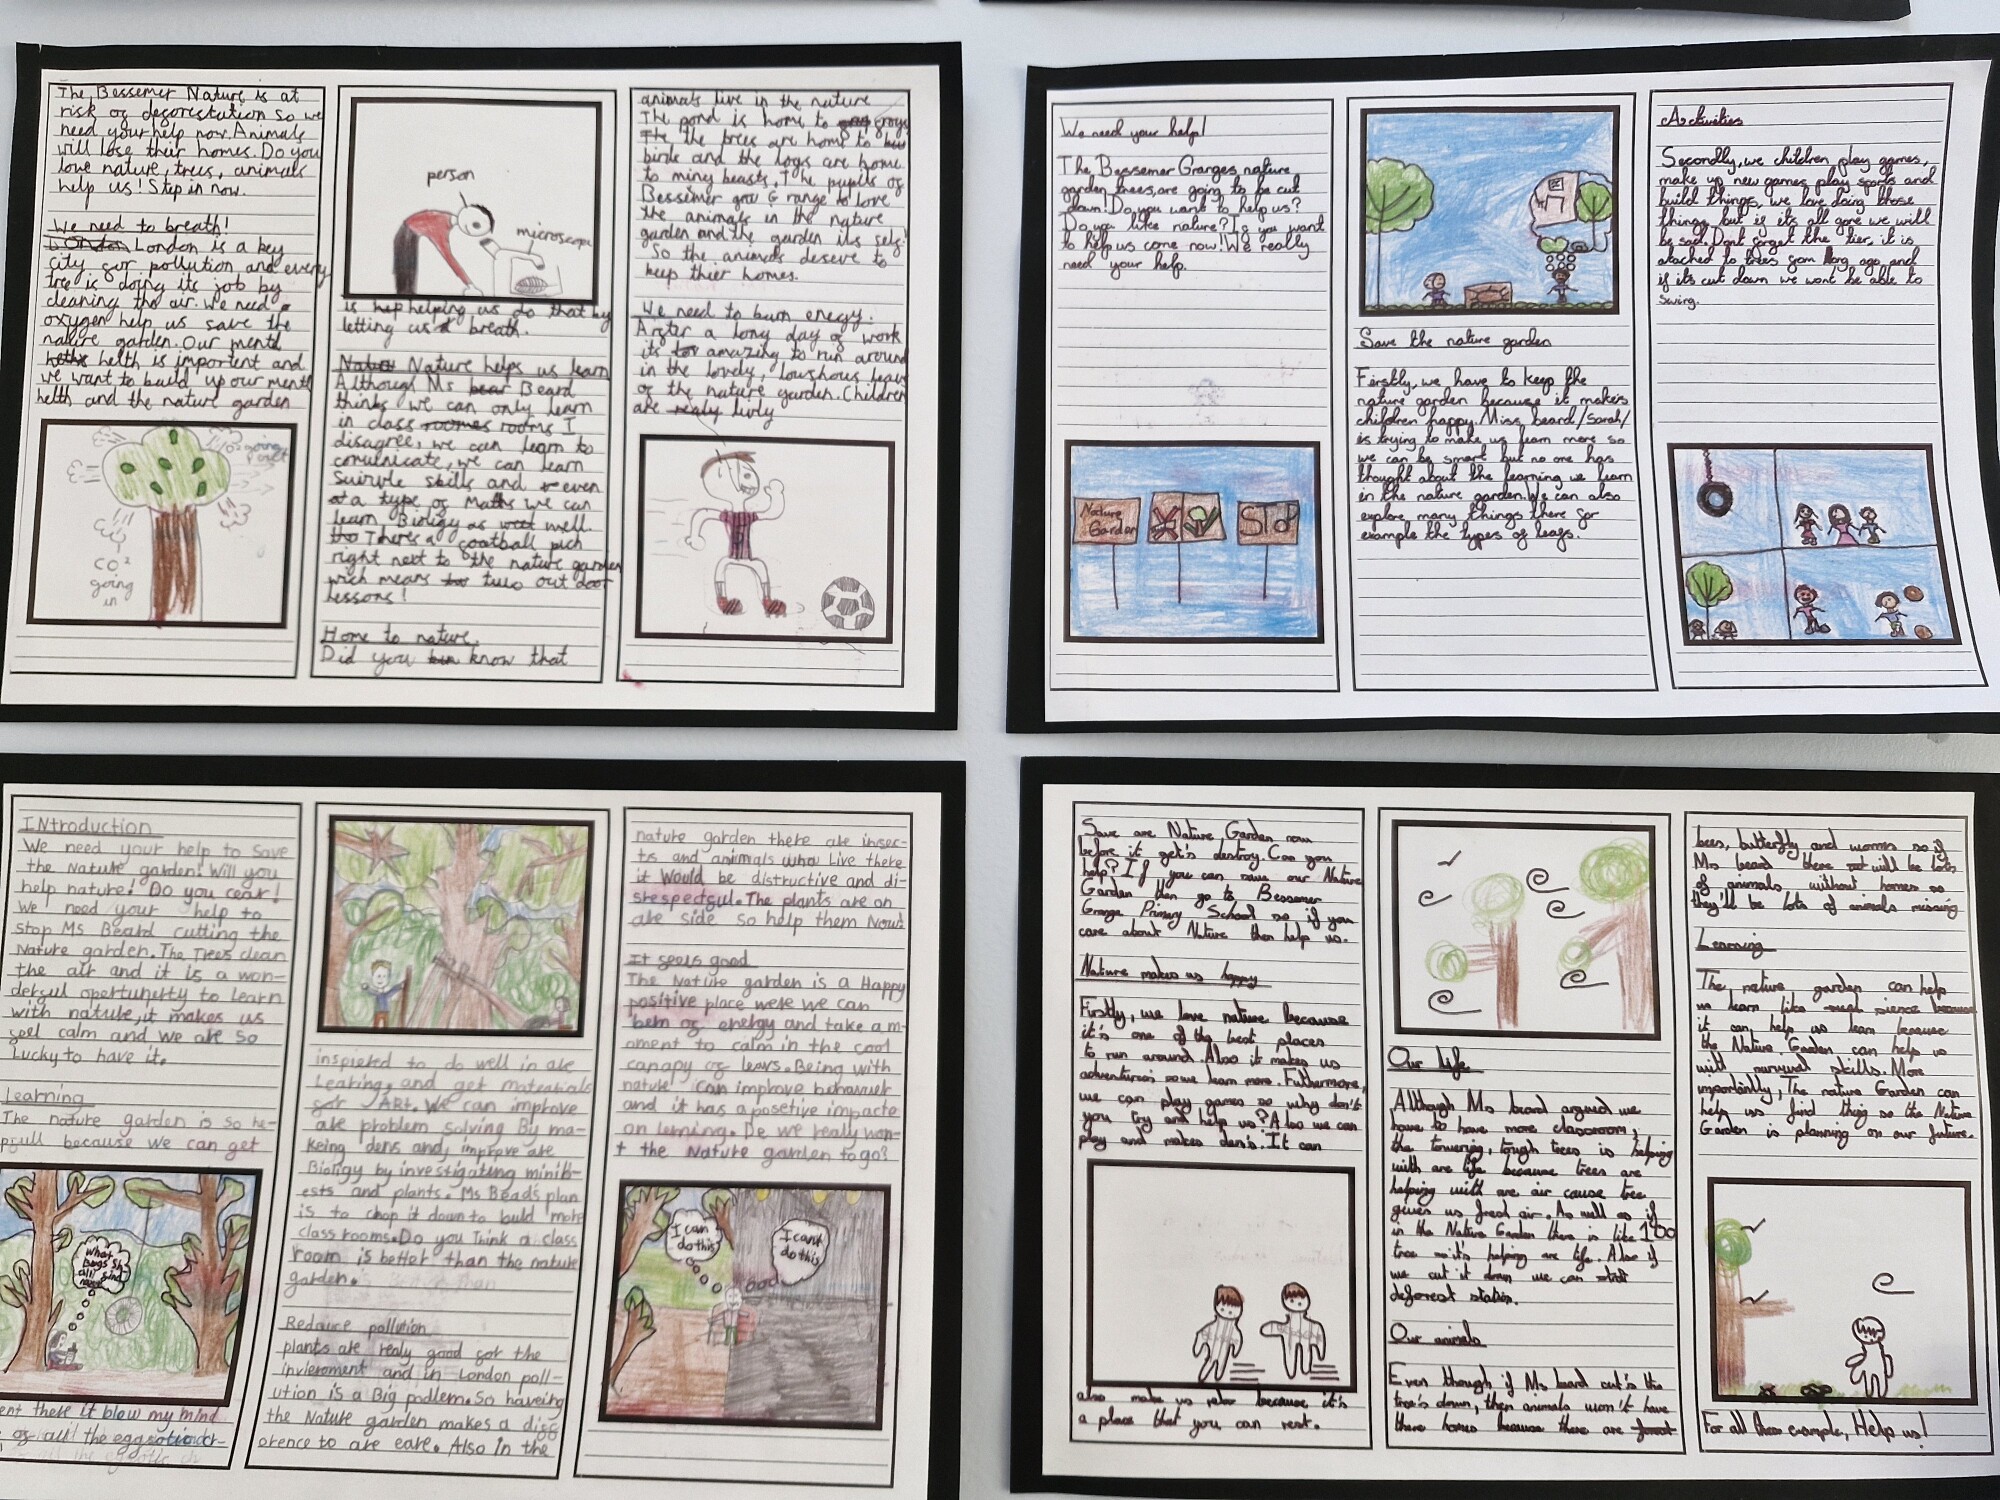 The Bessemer Nature is at
risk of deforestution so we
need your help now. Animals
will lose their homes. Do you
love nature, trees, animals
help us! Step in now.
We need to breath!
London London is a key
city for pollution and every
tree is doing its job by
cleaning the air. We need
oxygen help us save the
nature garden. Our mentl
helth is importent and
we want to build up our mentl
helth and the nature garden
CO²
going
in
person
microscope
is helping us do that by
letting us breath.
Nature helps us learn
Although Ms Beard
thinks we can only learn
in class rooms I
disagree, we can learn to
comunicate, we can learn
Suirvle skills and even
a type of Maths we can
learn Biology as well.
There's a football pich
right next to the nature garden
wich means two out door
lessons!
Home to nature.
Did you know that
animals live in the nature
The pond is home to frogs
the trees are home to
birds and the logs are home
to miny beasts. The pupils of
Bessimer gou G range to love
the animals in the nature
garden and the garden its self!
So the animals deserve to
keep thier homes.
We need to burn enegy.
After a long day of work
its amazing to run around
in the lovely, loushous leavs
of the nature garden. Children
are livly
We need your help!
The Bessemer Granges nature
garden trees, are going to be cut
down! Do you want to help us?
Do you like nature? If you want
to help us come now! We really
need your help.
Nature
Garden
STOP
Save the nature garden
Firstly, we have to keep the
nature garden because it makes
children happy. Miss beard/Sarah/
is trying to make us learn more so
we can be smart but no one has
thought about the learning we learn
in the nature garden. We can also
explore many things there for
example the types of leafs.
Activities
Secondly, we children play games,
make up new games, play sports and
build things, we love doing those
things, but if its all gone we will
be sad. Dont forget the tier, it is
atached to trees from long ago, and
if its cut down we wont be able to
swing.
INtroduction
We need your help to Save
the Nature garden! Will you
help nature! Do you cear!
We need your help to
stop Ms Beard cutting the
Nature garden. The Trees clean
the air and it is a won-
derful opertunerty to learn
with nature, it makes us
feel calm and we are so
Lucky to have it.
Learning
The nature garden is so he-
pfull because we can get
What
bugs sh
all i find
now?
ent there it blow my mind
of all the
inspiered to do well in are
Learing, and get matearials
for ART. We can improve
are problem solving By ma-
keing dens and, improve are
Bioligy by investigating minib-
ests and plants. Ms Bead's plan
is to chop it down to build more
classrooms. Do you Think a class
room is better than the nature
garden.
Redauce pollution
plants are realy good for the
invieroment and in London poll-
ution is a Big prdlem. So haveing
the Nature garden makes a diff
erence to are eare. Also in the
nature garden there are insec-
ts and animals who live there
it Would be distructive and di-
srespectful. The plants are on
are side so help them Now!
It feels good
The Nature garden is a Happy
positive place were we can
bern of energy and take a m-
oment to calm in the cool
canapy of leavs. Being with
nature can improve behavier
and it has a posetive impacte
on lerning. Do we really won-
t the Nature garden to go?
I can
do this
I can't
do this
Save are Nature Garden now
before it get's destroy. Can you
help? If you can save our Nature
Garden then go to Bessemer
Grange Primary School so if you
care about Nature then help us.
Nature makes us happy
Firstly, we love nature because
it's one of the best places
to run around. Also it makes us
adventures so we learn more. Futhermore,
we can play games so why don't
you try and help us? Also we can
play and makes den's. It can
also make us relax because it's
a place that you can rest.
Our life
Although Ms beard argued we
have to have more classroom,
the towering, tough trees is helping
with are life because trees are
helping with are air cause tree
gives us fresh air. As well as if
in the Nature Garden there is like 100
tree so it's helping are life. Also if
we cut it down we can
deforest station.
Our animals
Even though if Ms beard cut's the
tree's down, then animals won't have
there homes because there are forest
bees, butterfly and worms so if
Ms beard there will be lots
of animals without homes so
they'll be lots of animals missing
Learning
The nature garden can help
us learn like sience because
it can help us learn because
the Nature Garden can help us
with survival skills. More
importantly, The nature Garden can
help us find thing so the Nature
Garden is planning on our future.
For all these example, Help us!